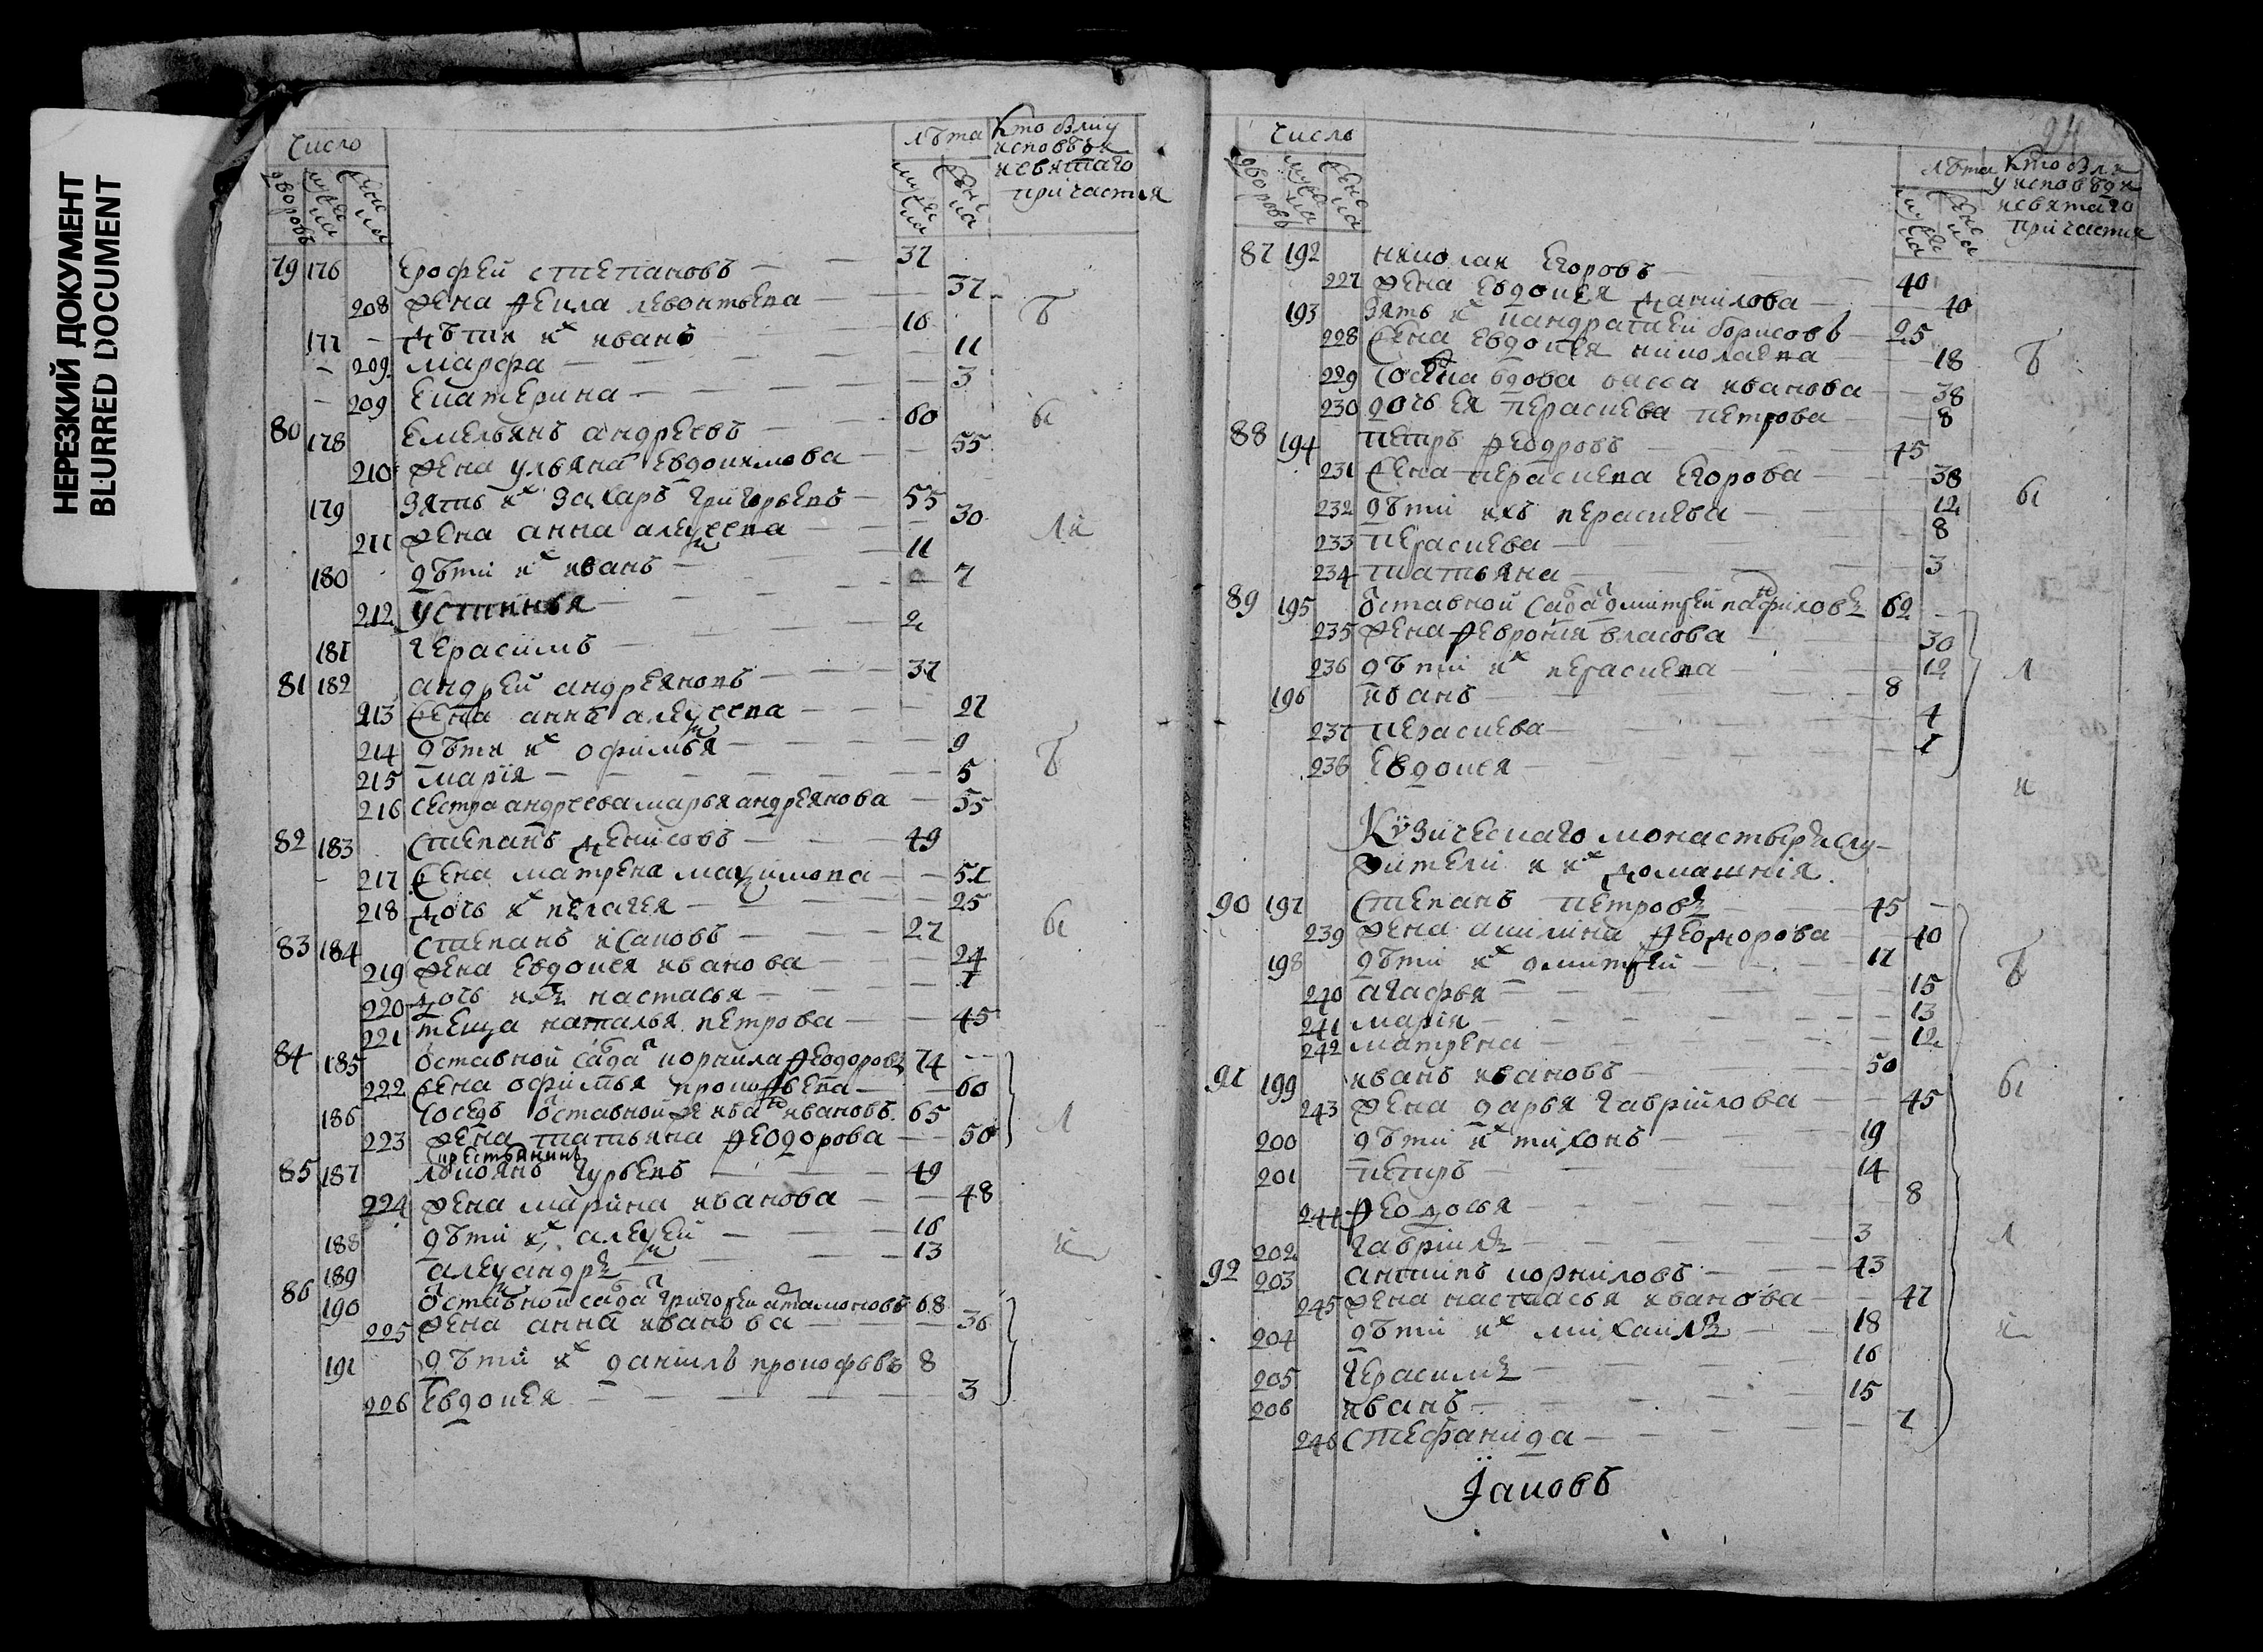 НЕРЕЗКИЙ ДОКУМЕНТ
BLURRED DOCUMENT
Число
лѣта
Кто былиу
исповѣди
исвятаго
причастия
дворовъ
мужеска
женска
мужеска
женска
79 176 Ерофей степановъ 37
208 жена Феила левонтьева 37
177 дѣти их иванъ 10
209 марфа 11
209 Екатерина 3
80 178 Емельянъ андреевъ 60
210 жена ульяна Евдокимова 55
179 зять их захаръ григорьевъ 55
211 жена анна алексеева 30
180 дѣти их иванъ 11
212 устинья 7
181 герасимъ 2
81 182 андрей андреяновъ 37
213 жена анна алексеева 27
214 дѣти их офимья 9
215 мария 5
216 сестра андреева марья андреянова 55
82 183 степанъ денисовъ 49
217 жена матрена максимова 51
218 дочь их пелагея 25
83 184 степанъ исаковъ 27
219 жена Евдокея иванова 24
220 дочь ихъ настасья 1
221 теща наталья петрова 45
84 185 отставной салдат корнила Феодоровъ 74
222 жена офимья прокофьева 60
186 соседъ отставной же иванъ ивановъ 65
223 жена татьяна Феодорова 50
крестьянинъ
85 187 лукоянъ гурьевъ 49
224 жена марина иванова 48
188 дѣти их алексей 16
189 александръ 13
86 190 отставной салдат григорей атамоновъ 68
225 жена анна иванова 36
191 дѣти их данилъ прокофьевъ 8
226 Евдокея 3
ъ
ы
ли
ъ
ы
л
и
24
Число
лѣта
Кто были
у исповѣди
исвятаго
причастия
дворовъ
мужеска
женска
мужеска
женска
87 192 николай Егоровъ 40
227 жена Евдокея данилова 40
193 зять их кандратей борисовъ 25
228 жена Евдокея николаева 18
229 соседка вдова васса иванова 38
230 дочь ея параскева петрова 8
88 194 петръ Феодоровъ 45
231 жена параскева Егорова 38
232 дѣти ихъ параскева 12
233 параскева 8
234 татьяна 3
89 195 отставной салдат дмитрей панфиловъ 62
235 жена Феврония власова 30
236 дѣти их параскева 12
196 иванъ 8
237 параскева 4
238 Евдокея 1
Кузическаго монастыря слу-
жители и их домашнія
90 197 степанъ петровъ 45
239 жена акилина Феодорова 40
198 дѣти их дмитрей 17
240 агафья 15
241 марія 13
242 матрена 12
91 199 иванъ ивановъ 50
243 жена дарья гаврилова 45
200 дѣти их тихонъ 19
201 петръ 14
244 Феодосья 8
202 гаврилъ 3
92 203 антипъ корниловъ 43
245 жена настасья иванова 47
204 дѣти их михаилъ 18
205 герасимъ 16
206 иванъ 15
246 стефанида 7
Іаковъ
ъ
ы
л
и
ъ
ы
л
и